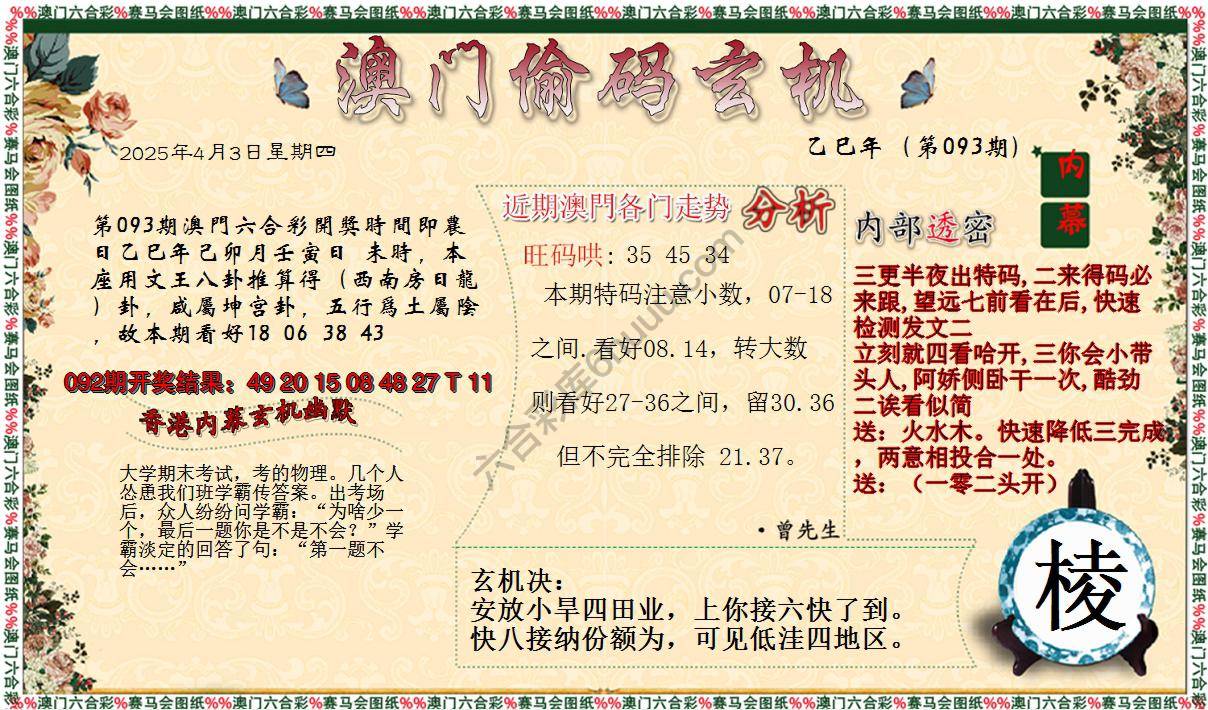 %%澳门六合彩%赛马会图纸%%澳门六合彩%赛马会图纸%%澳门六合彩%赛马会图纸%%澳门六合彩%赛马会图纸%%澳门六合彩%赛马会图纸%%澳门六合彩%赛马会图纸%%
澳门偷码玄机
2025年4月3日星期四
乙巳年（第093期）
内
幕
第093期澳門六合彩開獎時間即農
日乙巳年己卯月壬寅日 未時，本
座用文王八卦推算得（西南房日龍
）卦，咸屬坤宫卦，五行爲土屬陰
，故本期看好18 06 38 43
092期开奖结果：49 20 15 08 48 27 T 11
香港内幕玄机幽默
大学期末考试，考的物理。几个人
怂恿我们班学霸传答案。出考场
后，众人纷纷问学霸：“为啥少一
个，最后一题你是不是不会？”学
霸淡定的回答了句：“第一题不
会……”
近期澳門各门走势 分析
旺码哄: 35 45 34
本期特码注意小数，07-18
之间.看好08.14，转大数
则看好27-36之间，留30.36
但不完全排除 21.37。
·曾先生
内部透密
三更半夜出特码,二来得码必
来跟,望远七前看在后,快速
检测发文二
立刻就四看哈开,三你会小带
头人,阿娇侧卧干一次,酷劲
二诶看似简
送：火水木。快速降低三完成
，两意相投合一处。
送：（一零二头开）
玄机决：
安放小旱四田业，上你接六快了到。
快八接纳份额为，可见低洼四地区。
棱
%%澳门六合彩%赛马会图纸%%澳门六合彩%赛马会图纸%%澳门六合彩%赛马会图纸%%澳门六合彩%赛马会图纸%%澳门六合彩%赛马会图纸%%澳门六合彩%赛马会图纸%%